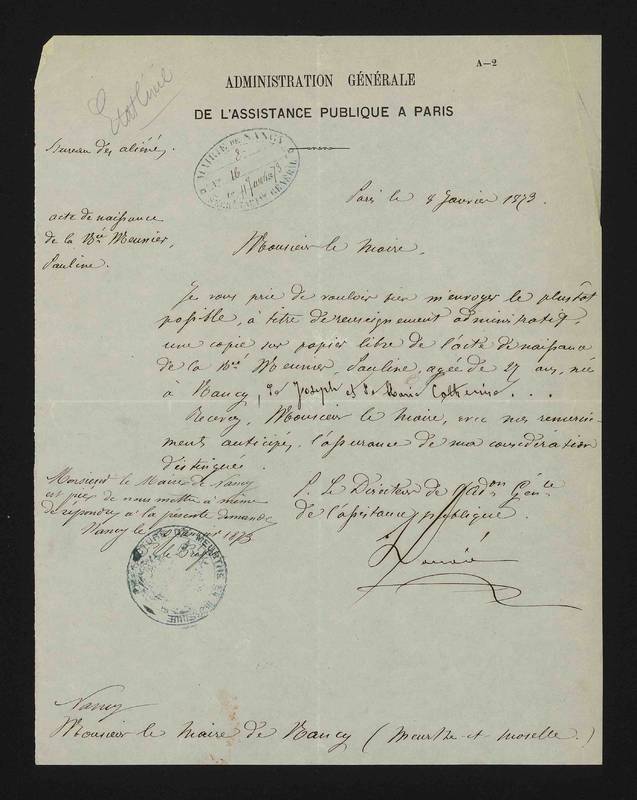 A—2
Etat Civil
ADMINISTRATION GÉNÉRALE
DE L'ASSISTANCE PUBLIQUE A PARIS
bureau des aliénés.
MAIRIE DE NANCY
No 16
SECRÉTARIAT GÉNÉRAL
Paris le 8 Janvier 1873.
acte de naissance
de la Née Meunier,
Pauline.
Monsieur le Maire,
Je vous prie de vouloir bien m'envoyer le plustôt
possible, à titre de renseignement administratif,
une copie sur papier libre de l'acte de naissance
de la Née Meunier, Pauline, agée de 27 ans, née
à Nancy, de Joseph et de Marie Catherine...
Recevez, Monsieur le Maire, avec nos remerci-
ments anticipés, l'assurance de ma considération
distinguée.
Monsieur le Maire de Nancy
est prié de nous mettre à même
de répondre à la présente demande
Nancy le 1873
P. le Directeur de l'adon Génle
de l'assistance publique.
MEURTHE ET MOSELLE
Nancy
Monsieur le Maire de Nancy (Meurthe-et-Moselle.)